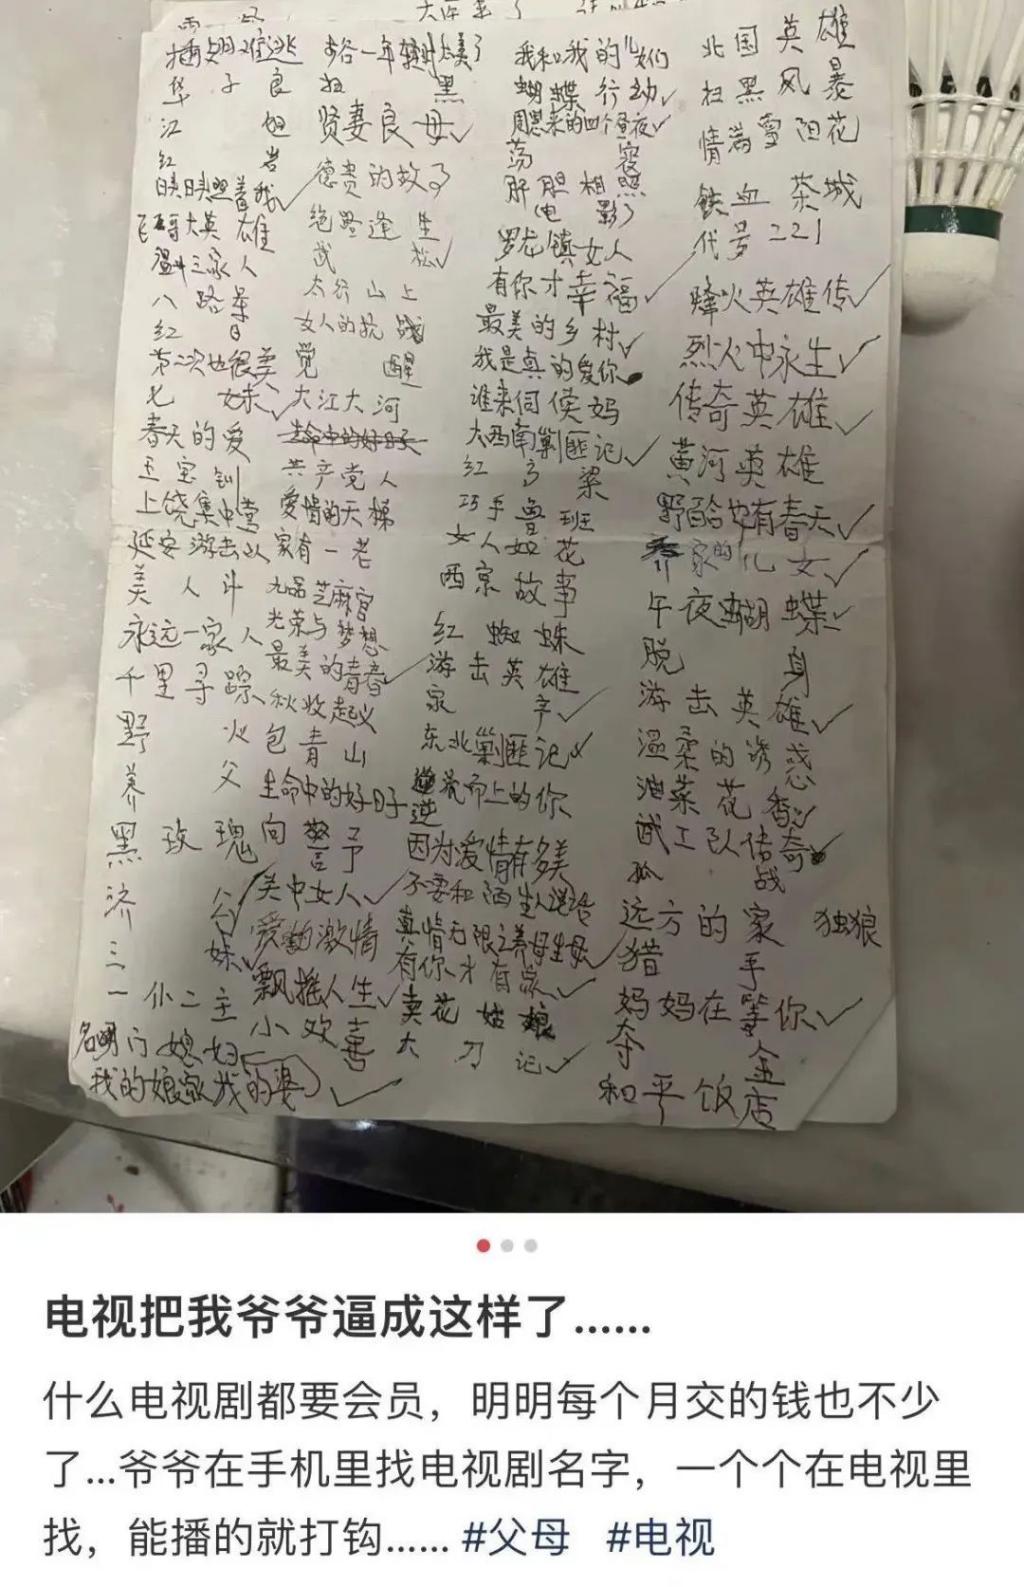 插翅难逃
华子良
江姐
红岩
映日映照着我
飞哥大英雄
温州三家人
八路军
红日
第二次也很美
七妹
春天的爱
王宝钏
上饶集中营
延安游击队
美人斗
永远一家人
千里寻踪
野火
养父
黑玫瑰
济公
三妹
一仆二主
名门媳妇
我的娘家我的婆
扫黑
贤妻良母
德贵的故事
绝路逢生
武松
太行山上
女人的抗战
觉醒
大江大河
生命中的好日子
共产党人
爱情的天梯
家有一老
九品芝麻官
光荣与梦想
最美的青春
秋收起义
包青山
生命中的好日子
向警予
关中女人
爱的激情
飘摇人生
小欢喜
我和我的儿女们
蝴蝶行动
周恩来的四个昼夜
荡寇
肝胆相照
(电影)
罗龙镇女人
有你才幸福
最美的乡村
我是真的爱你
谁来伺候妈
大西南剿匪记
红高粱
巧手鲁班
女人如花
西京故事
红蜘蛛
游击英雄
家宴
东北剿匪记
逆光而上的你
因为爱情有多美
不要和陌生人说话
真情无限之养母生母
有你才有家
卖花姑娘
大刀记
北国英雄
扫黑风暴
情满雪阳花
铁血茶城
代号221
烽火英雄传
烈火中永生
传奇英雄
黄河英雄
野百合也有春天
乔家的儿女
午夜蝴蝶
脱身
游击英雄
温柔的诱惑
油菜花香
武工队传奇
孤战
远方的家 独狼
猎手
妈妈在等你
夺金
和平饭店
电视把我爷爷逼成这样了......
什么电视剧都要会员，明明每个月交的钱也不少
了...爷爷在手机里找电视剧名字，一个个在电视里
找，能播的就打钩...... #父母 #电视